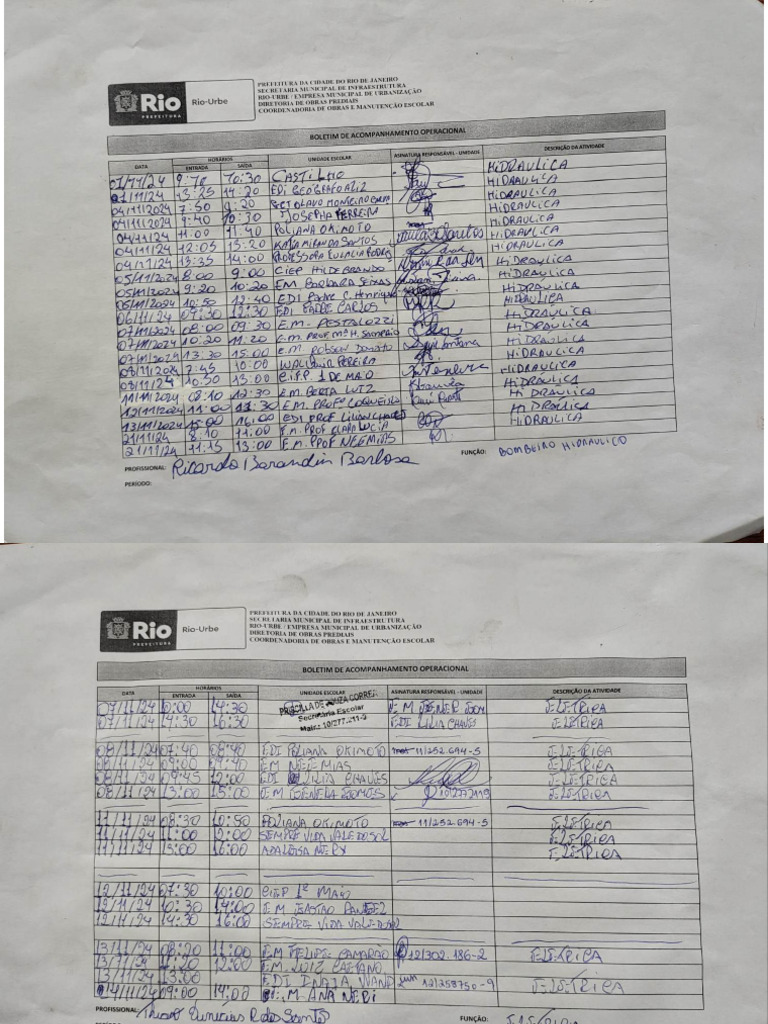 Rio
PREFEITURA
Rio-Urbe
PREFEITURA DA CIDADE DO RIO DE JANEIRO
SECRETARIA MUNICIPAL DE INFRAESTRUTURA
RIO-URBE / EMPRESA MUNICIPAL DE URBANIZAÇÃO
DIRETORIA DE OBRAS PREDIAIS
COORDENADORIA DE OBRAS E MANUTENÇÃO ESCOLAR
BOLETIM DE ACOMPANHAMENTO OPERACIONAL
DATA HORÁRIOS ENTRADA SAÍDA UNIDADE ESCOLAR ASSINATURA RESPONSÁVEL - UNIDADE DESCRIÇÃO DA ATIVIDADE
01/11/24 9:10 10:30 CASTILHO HIDRAULICA
01/11/24 13:25 14:20 EDI HIDRAULICA
04/11/2024 7:50 9:20 HIDRAULICA
04/11/2024 9:40 10:30 JOSEPHA FERREIRA HIDRAULICA
04/11/24 11:00 11:40 POLIANA OKIMOTO HIDRAULICA
04/11/2024 12:05 13:20 MIRANDA SANTOS HIDRAULICA
04/11/24 13:35 14:00 PROFESSORA HIDRAULICA
05/11/2024 8:00 9:00 CIEP HILDEBRANDO HIDRAULICA
05/11/2024 9:20 10:20 EM BARBARA SEIXAS HIDRAULICA
05/11/2024 10:50 12:40 EDI PADRE C. Henrique HIDRAULICA
06/11/2024 09:30 12:30 EDI PADRE CARLOS HIDRAULICA
07/11/2024 08:00 09:30 E.M. PESTALOZZI HIDRAULICA
07/11/2024 10:20 11:20 E.M. PROFª Mª H. SAMPAIO HIDRAULICA
07/11/2024 13:30 15:00 E.M ROBSON HIDRAULICA
08/11/2024 7:45 10:00 WALDIMIR PEREIRA HIDRAULICA
08/11/2024 10:50 13:00 CIEP. 1 DE MAIO HIDRAULICA
11/11/2024 08:10 12:30 E.M. BERTA LUTZ HIDRAULICA
12/11/2024 11:00 13:30 E.M. PROFº HIDRAULICA
13/11/2024 15:00 16:00 EDI PROFª LILIAN CHAVES HIDRAULICA
21/11/2024 8:10 11:00 E.M. PROF CLARA LUCIA HIDRAULICA
21/11/2024 11:15 13:00 E.M. PROF NEEMIAS
PROFISSIONAL: Ricardo Barandin Barbosa FUNÇÃO: BOMBEIRO HIDRAULICO
PERÍODO:
Rio
PREFEITURA
Rio-Urbe
PREFEITURA DA CIDADE DO RIO DE JANEIRO
SECRETARIA MUNICIPAL DE INFRAESTRUTURA
RIO-URBE / EMPRESA MUNICIPAL DE URBANIZAÇÃO
DIRETORIA DE OBRAS PREDIAIS
COORDENADORIA DE OBRAS E MANUTENÇÃO ESCOLAR
BOLETIM DE ACOMPANHAMENTO OPERACIONAL
DATA HORÁRIOS ENTRADA SAÍDA UNIDADE ESCOLAR ASSINATURA RESPONSÁVEL - UNIDADE DESCRIÇÃO DA ATIVIDADE
07/11/24 10:00 14:30 PRISCILLA DE SOUZA CORREA E M ELETRICA
07/11/24 14:30 16:30 Secretária Escolar EDI LILIA CHAVES ELETRICA
Matr.: 10/277.211-9
08/11/24 07:40 08:40 EDI POLIANA OKIMOTO 11/252.694-5 ELETRICA
08/11/24 09:00 09:40 EM NEEMIAS ELETRICA
08/11/24 09:45 12:00 EDI LILIA CHAVES ELETRICA
08/11/24 13:00 15:00 E M ELETRICA
11/11/24 08:30 10:50 POLIANA OKIMOTO 11/252.694-5 ELETRICA
11/11/24 11:00 12:00 SEMPRE VIDA VALE DO SOL ELETRICA
11/11/24 13:00 16:00 ADALGISA NERY ELETRICA
12/11/24 07:30 10:00 CIEP 1º MAIO
12/11/24 10:30 14:00 E M GASTÃO
12/11/24 14:30 16:00 SEMPRE VIDA
13/11/24 08:20 11:00 E M FELIPE CAMARÃO 12/302.186-2 ELETRICA
13/11/24 11:20 12:00 E.M. LUIZ CAETANO
13/11/24 13:00 EDI 12/258750-9 ELETRICA
14/11/24 09:00 14:00 E.M ANA NERI
PROFISSIONAL: FUNÇÃO: ELETRICA